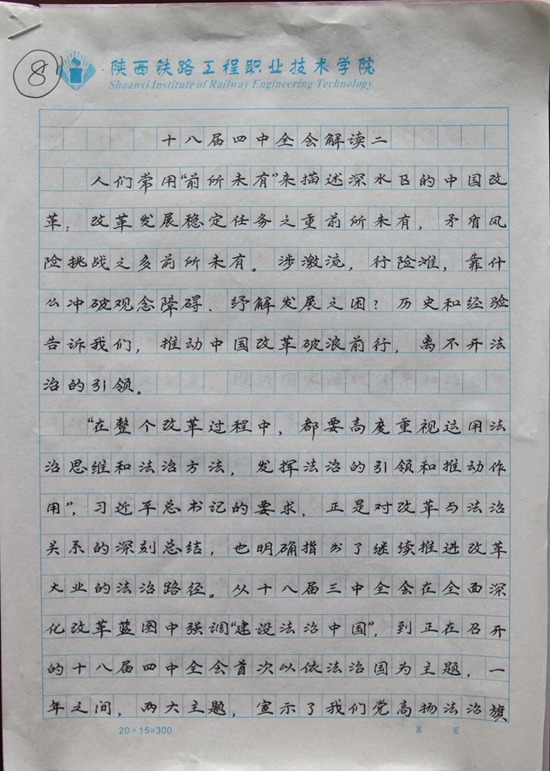 8
陕西铁路工程职业技术学院
Shaanxi Institute of Railway Engineering Technology
十八届四中全会解读二
人们常用“前所未有”来描述深水区的中国改
革：改革发展稳定任务之重前所未有，矛盾风
险挑战之多前所未有。涉激流，行险滩，靠什
么冲破观念障碍、纾解发展之困？历史和经验
告诉我们，推动中国改革破浪前行，离不开法
治的引领。
“在整个改革过程中，都要高度重视运用法
治思维和法治方法，发挥法治的引领和推动作
用”，习近平总书记的要求，正是对改革与法治
关系的深刻总结，也明确指出了继续推进改革
大业的法治路径。从十八届三中全会在全面深
化改革蓝图中强调“建设法治中国”，到正在召开
的十八届四中全会首次以依法治国为主题，一
年之间，两大主题，宣示了我们党高扬法治旗
20×15=300 第 页